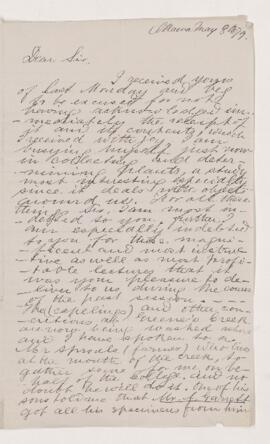 Ottawa May 8th/79.
Dear Sir.
I received yours
of last Monday and beg
to be excused for not
having acknowledged im-
mediately the receipt of
it and its contents, which
I received with it. I am
busying myself just now
in collecting and deter-
mining plants, a study
most interesting especially
since it deals with objects
around us. For all these
things sir, I am most in-
debted to you, further I
am especially indebted
to you for those magni-
ficent and most instruc-
tive as well as most profi-
table lectures that it
was your pleasure to de-
liver to us, during the course
of the past session.
The (capelings) and other con-
cretions, at Greene's Creek
are now being washed ashore
and I have spoken to a
Mr Sproule (farmer) who lives
at the mouth of the creek, to
gather some for me, on be-
half of the College, and no
doubt he will do it. One of his
sons told me that Mr J. Garrett
got all his specimens from him